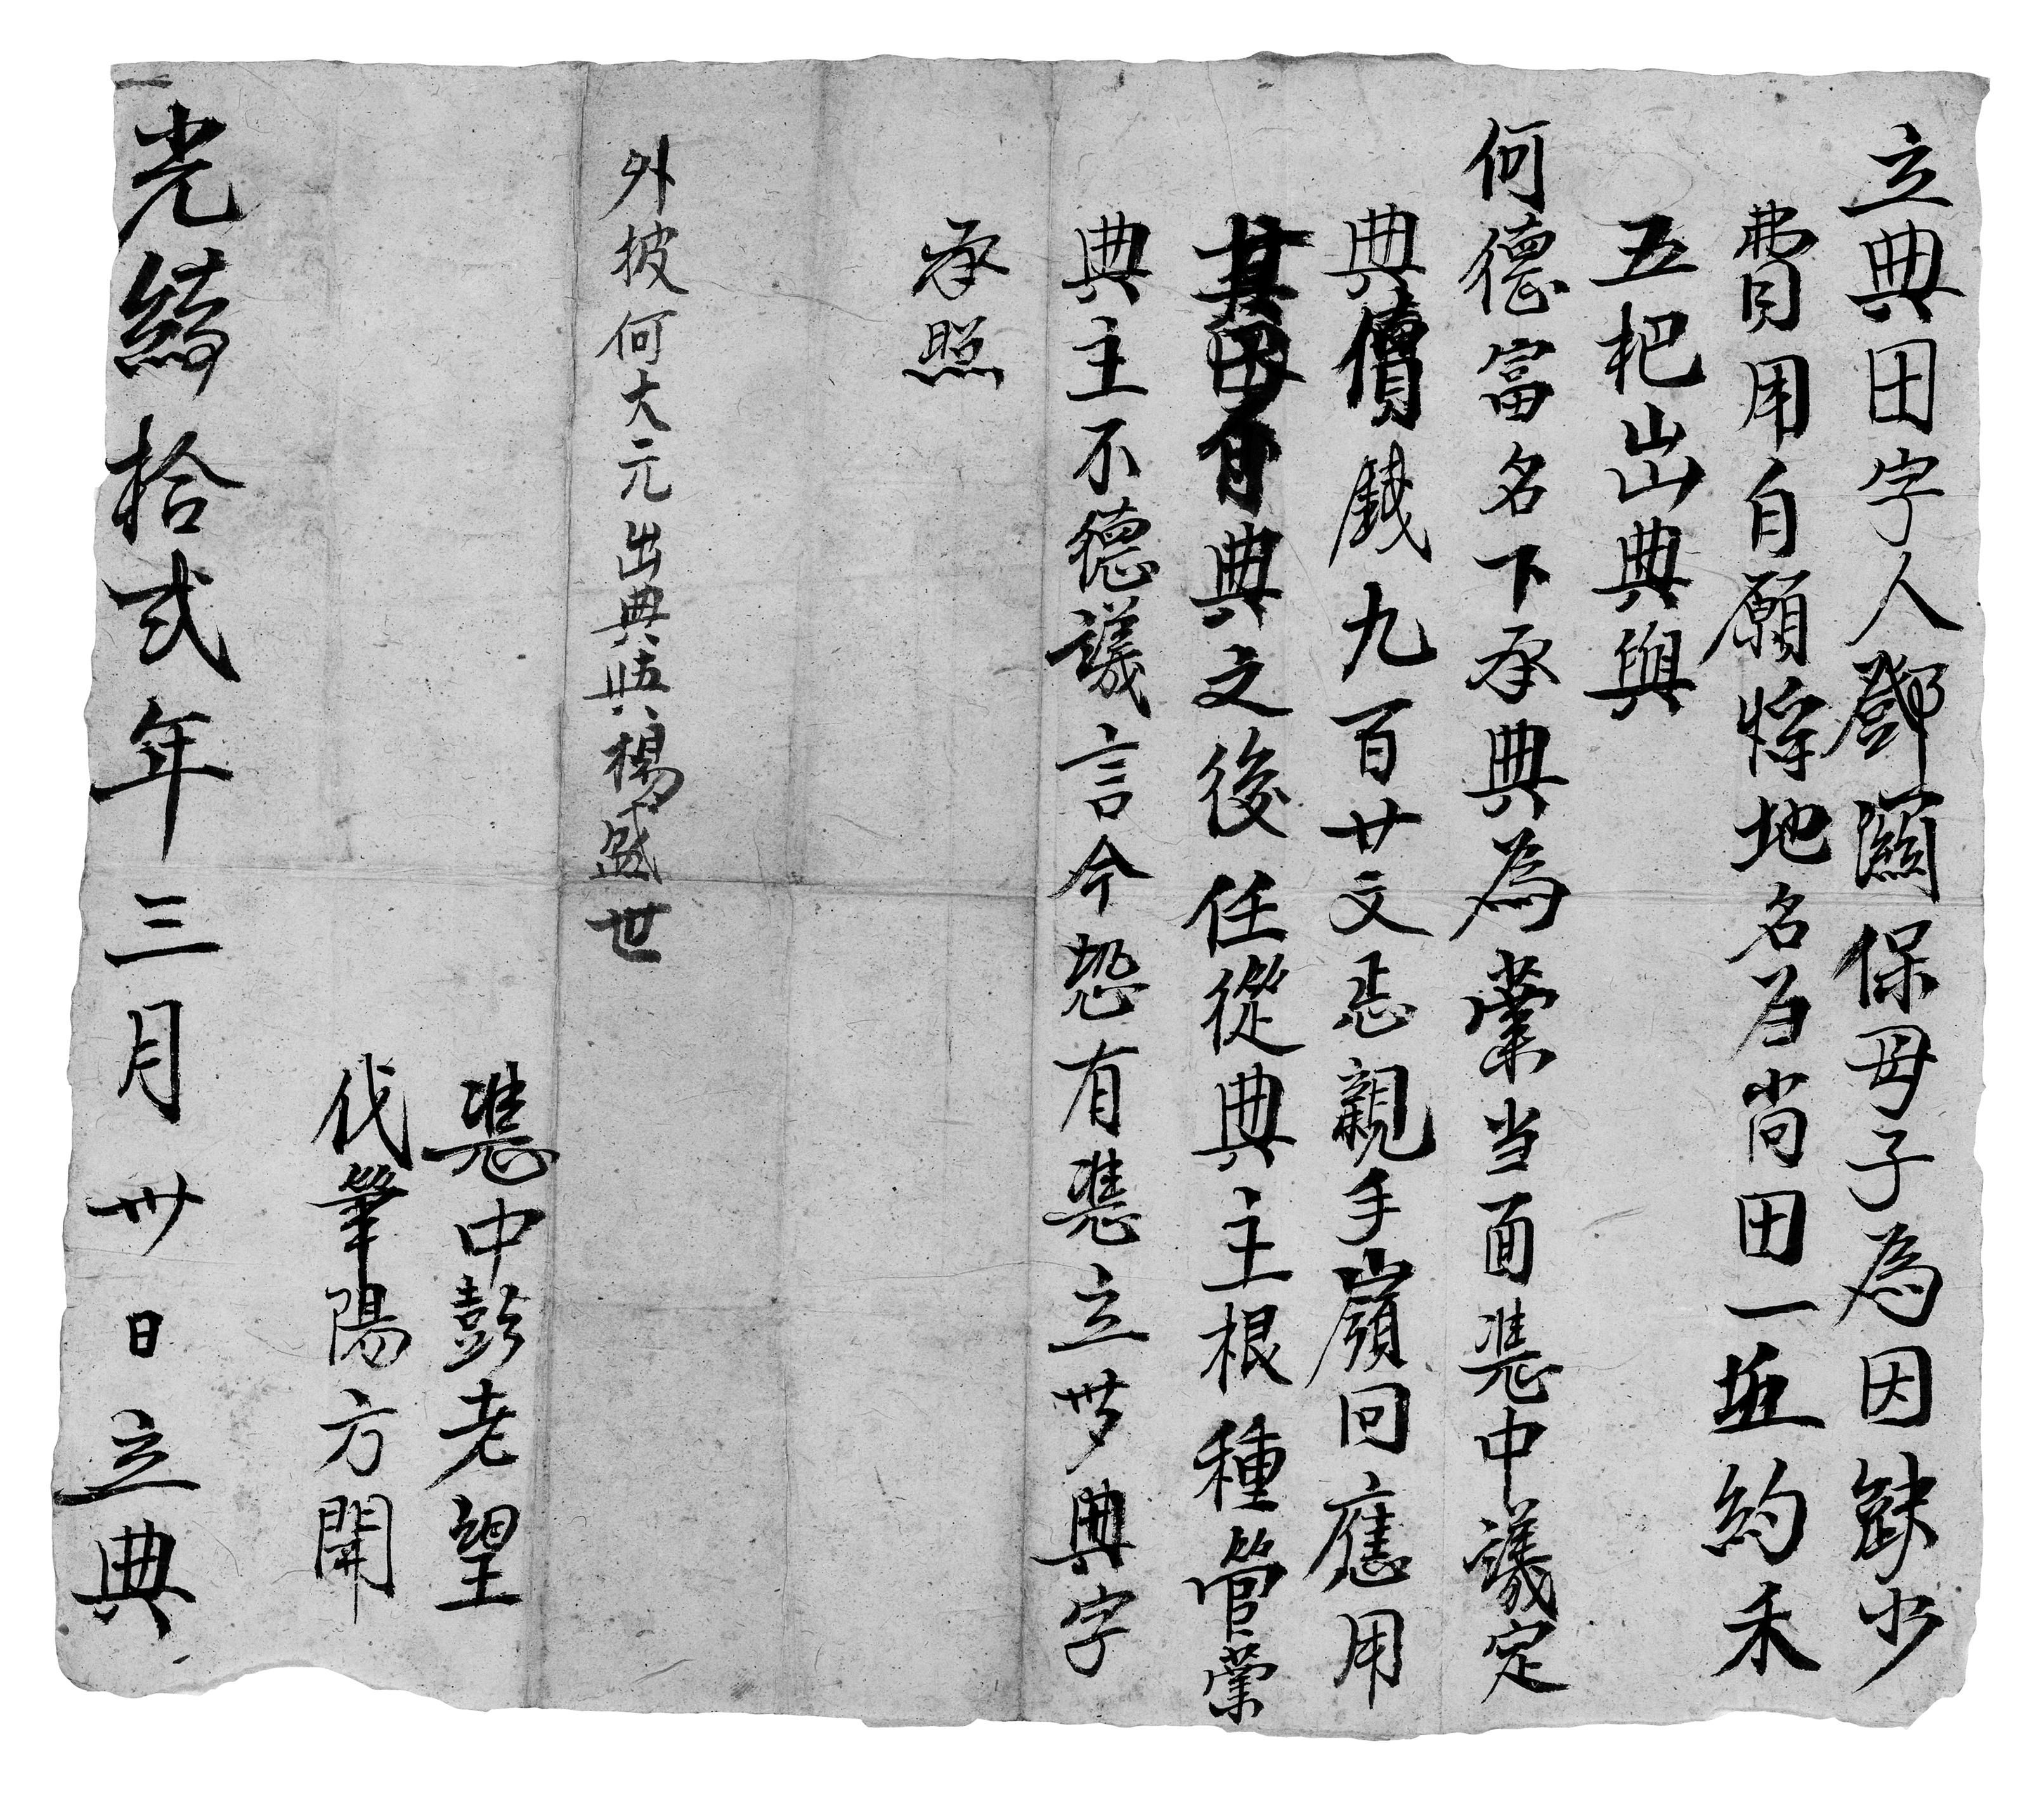 立典田字人鄧闘保母子為因缺少
費用自願将地名另尚田一坵約禾
五杷出典與
何德富名下承典為業当面慿中議定
典價錢九百廿文恁親手嶺回應用
其田自典之後任從典主根種管業
典主不德議言今恐有慿立典字
承照
外披何大元出典與楊盛世
慿中彭老望
伐筆陽方開
光緒拾弍年三月廿日立典